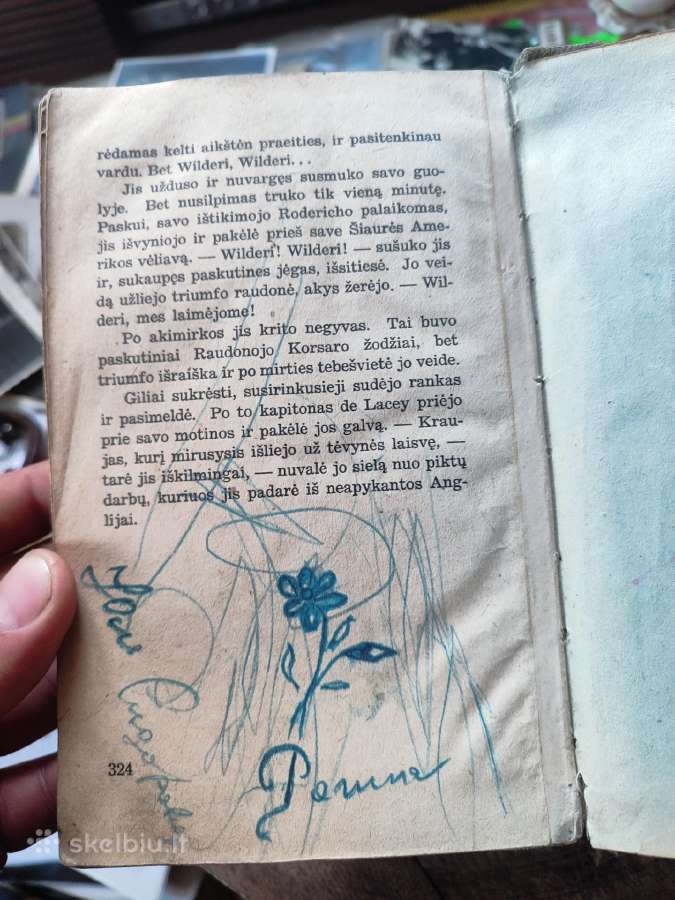 rėdamas kelti aikštėn praeities, ir pasitenkinau
vardu. Bet Wilderi, Wilderi...
Jis užduso ir nuvargęs susmuko savo guo-
lyje. Bet nusilpimas truko tik vieną minutę.
Paskui, savo ištikimojo Rodericho palaikomas,
jis išvyniojo ir pakėlė prieš save Šiaurės Ame-
rikos vėliavą. — Wilderi! Wilderi! — sušuko jis
ir, sukaupęs paskutines jėgas, išsitiesė. Jo vei-
dą užliejo triumfo raudonė, akys žerėjo. — Wil-
deri, mes laimėjome!
Po akimirkos jis krito negyvas. Tai buvo
paskutiniai Raudonojo Korsaro žodžiai, bet
triumfo išraiška ir po mirties tebešvietė jo veide.
Giliai sukrėsti, susirinkusieji sudėjo rankas
ir pasimeldė. Po to kapitonas de Lacey priėjo
prie savo motinos ir pakėlė jos galvą. — Krau-
jas, kurį mirusysis išliejo už tėvynės laisvę, —
tarė jis iškilmingai, — nuvalė jo sielą nuo piktų
darbų, kuriuos jis padarė iš neapykantos Ang-
lijai.
324
skelbiu.lt